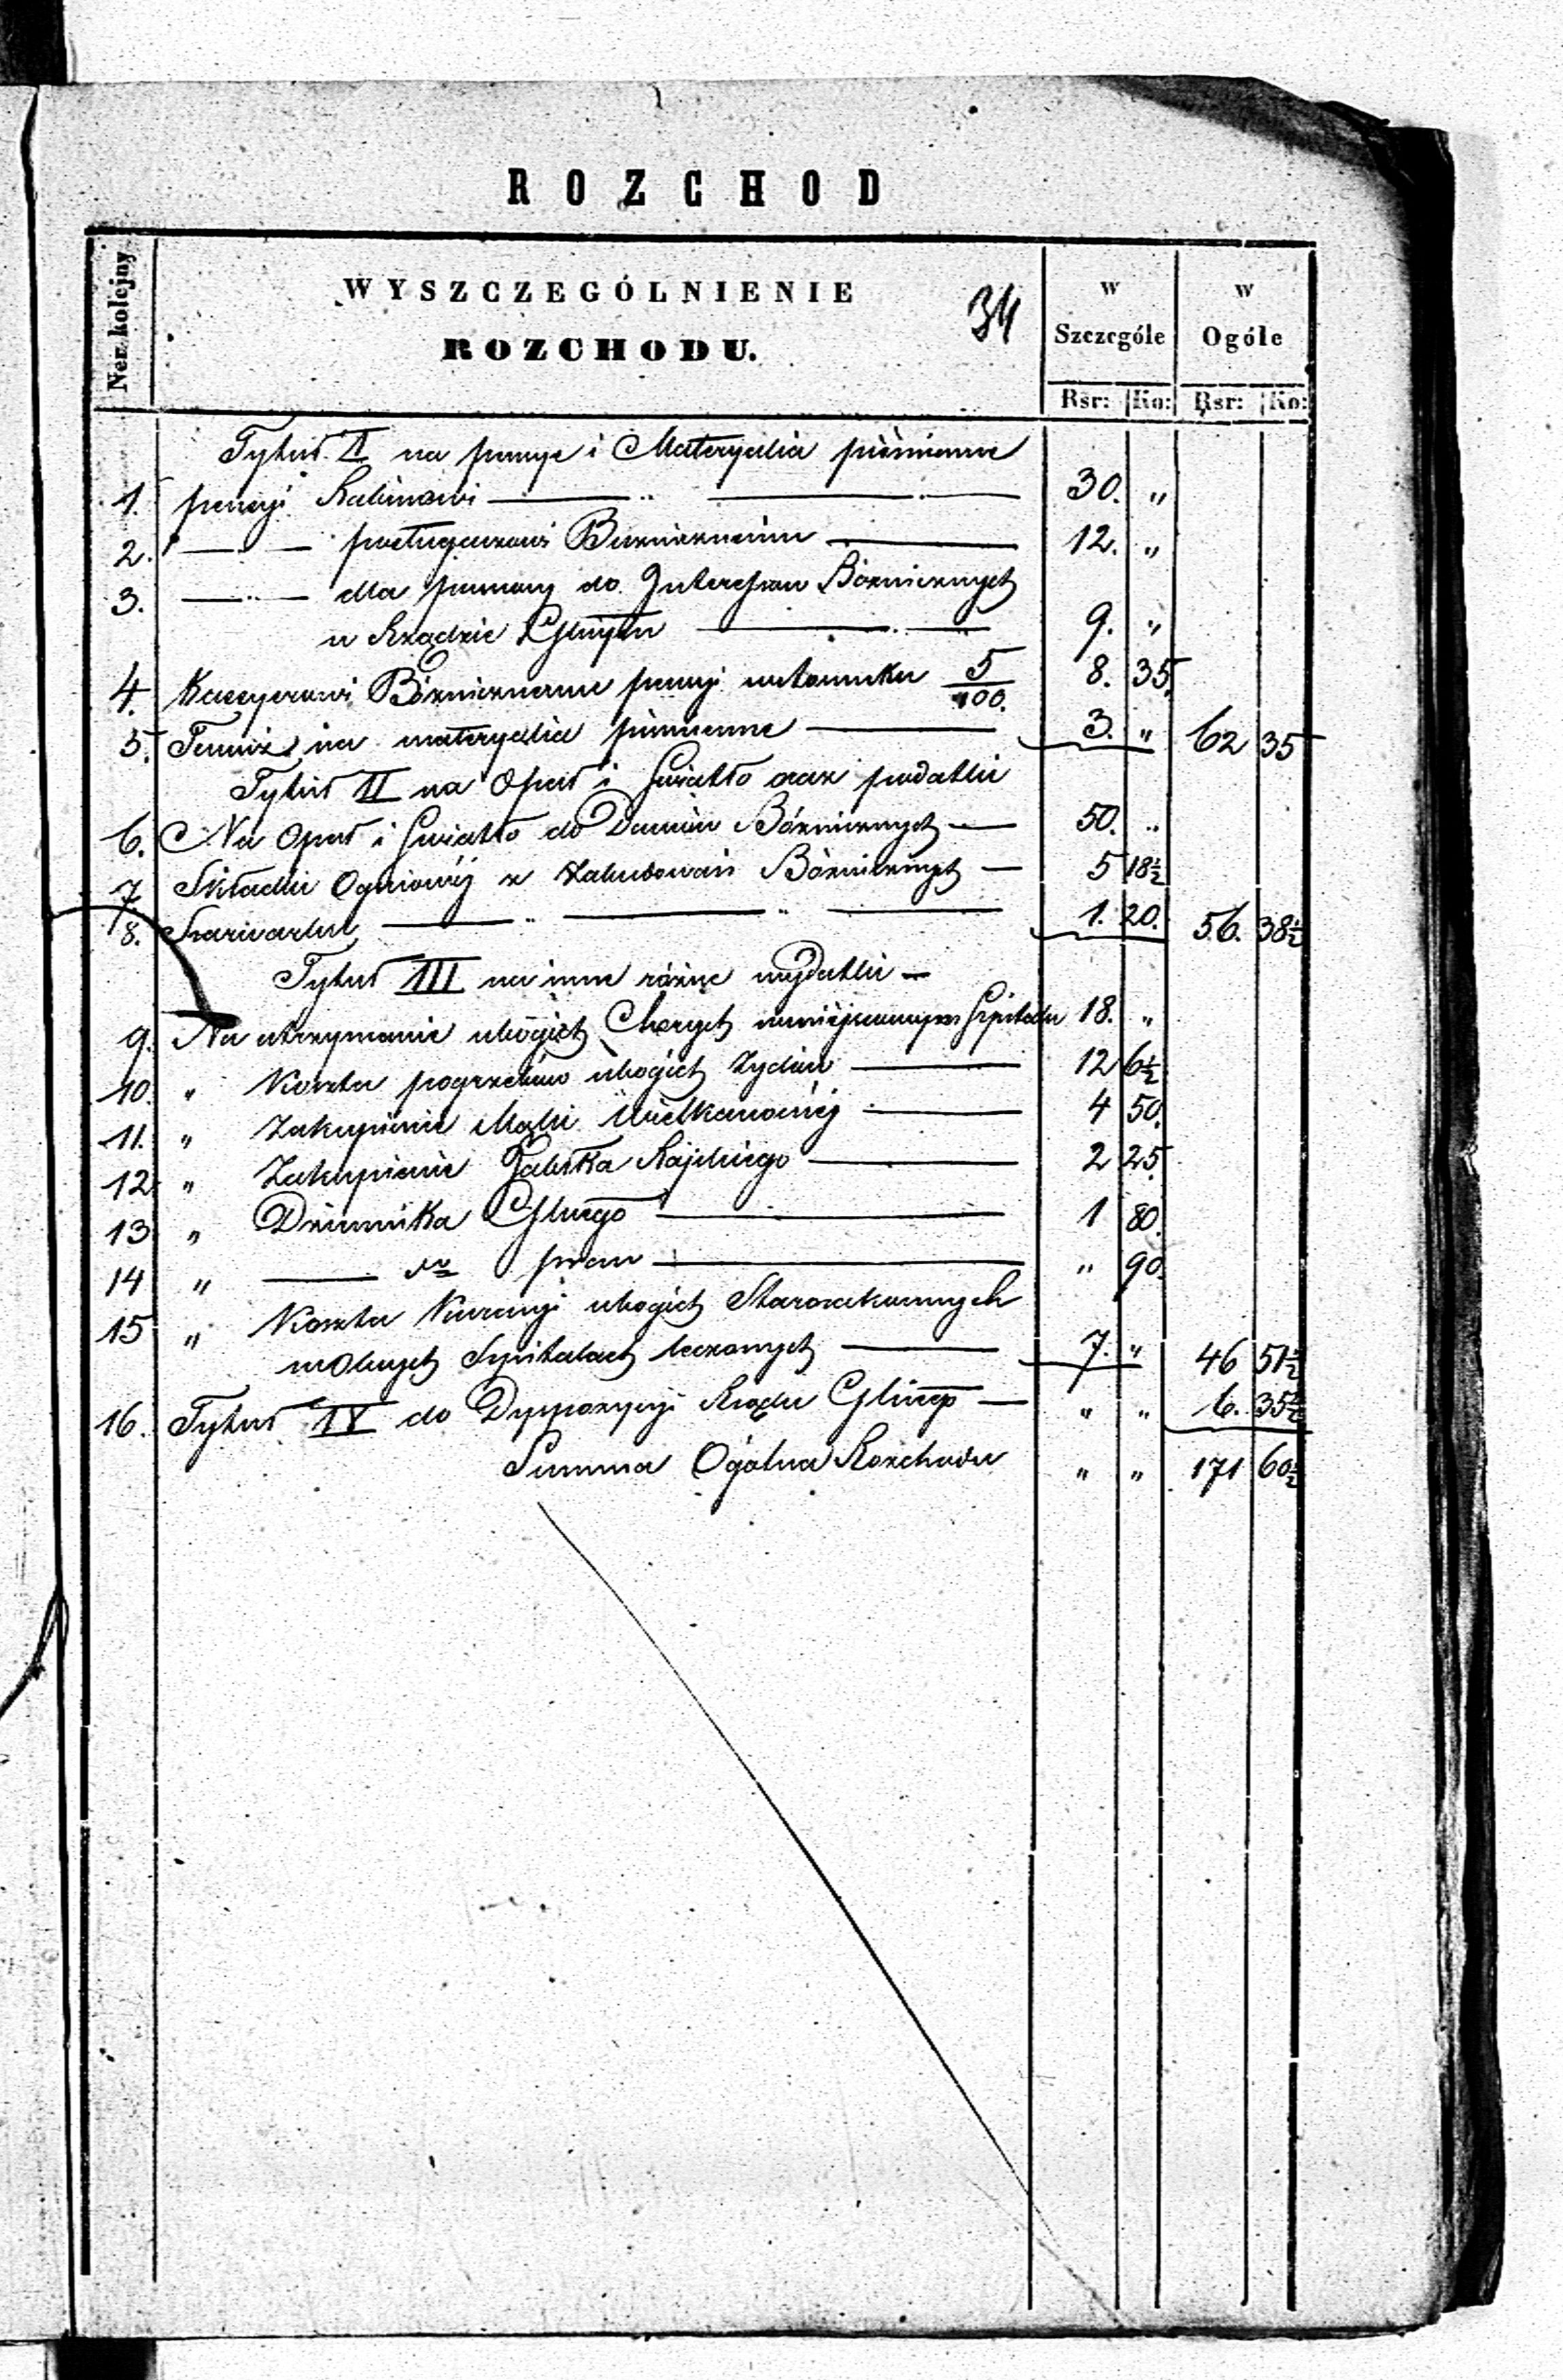 ROZCHOD
Ner kolejny
WYSZCZEGÓLNIENIE
ROZCHODU.
34
w Szczególe
w Ogóle
Rsr: Ko: Rsr: Ko:
Tytuł I na pensye i Materyalia piśmienne
1. pensyi Rabinowi 30. „
2. — Bożnicznemu 12. „
3. — dla do Interessow Bóżnicznych
w Urzędzie Gminym 9. „
4. Kassyerowi Bóżnicznemu pensyi 5/100. 8. 35.
5. Temuż na materyalia piśmienne 3. „ 62 35
Tytuł II na Opał i Swiatło oraz podatki
6. Na Opał i Swiatło do Domów Bóżnicznych 50. „
7. Składki Ogniowéj z Zabudowań Bóżnicznych 5 18½
8. Szarwarku 1. 20. 56. 38½
Tytuł III na inne różne wydatki
9. Na utrzymanie ubogich Chorych w Szpitalu 18. „
10. „ Koszta pogrzebów ubogich Żydów 12 6½
11. „ Zakupienie Mąki Wielkanocnéj 4 50.
12. „ Zakupienie Jabłka Rajskiego 2 25
13 „ Dziennika Glnego 1 80.
14 „ — do praw „ 90.
15 „ Koszta Kuracyi ubogich Starozakonnych
w Obcych Szpitalach leczonych 7. „ 46 51½
16. Tytuł IV do Dyspozycyi Rządu Glnego „ „ 6. 35½
Summa Ogolna Rozchodu „ „ 171 60½